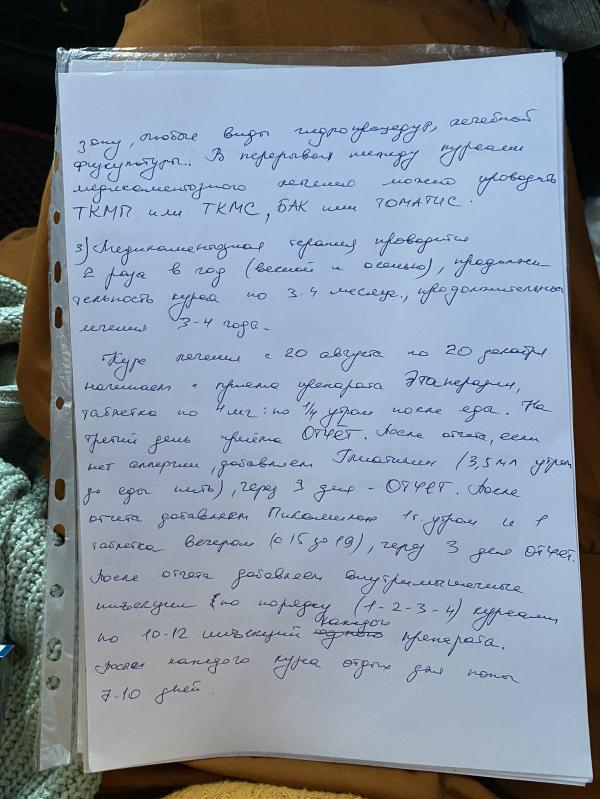 зону, любые виды гидропроцедур, лечебной
физкультуры. В перерывах между курсами
медикаментозного лечения можно проводить
ТКМП или ТКМС, БАК или ТОМАТИС.
3) Медикаментозная терапия проводится
2 раза в год (весной и осенью), продолжи
тельность курса по 3-4 месяца., продолжительность
лечения 3-4 года.
Курс лечения с 20 августа по 20 декабря
начинаем с приема препарата
таблетка по 4 мг: по 1/4 утром после еды. На
третий день приёма ОТЧЁТ. После отчета, если
нет аллергии, добавляем Глиатилин (3,5 мл утром
до еды пить), через 3 дня - ОТЧЕТ. После
отчета добавляем Пикамилон 1т. утром и 1
таблетка вечером (с 15 до 19), через 3 дня ОТЧЕТ.
После отчета добавляем внутримышечные
инъекции по порядку (1-2-3-4) курсами
по 10-12 инъекций каждого препарата.
После каждого курса отдых для попы
7-10 дней.